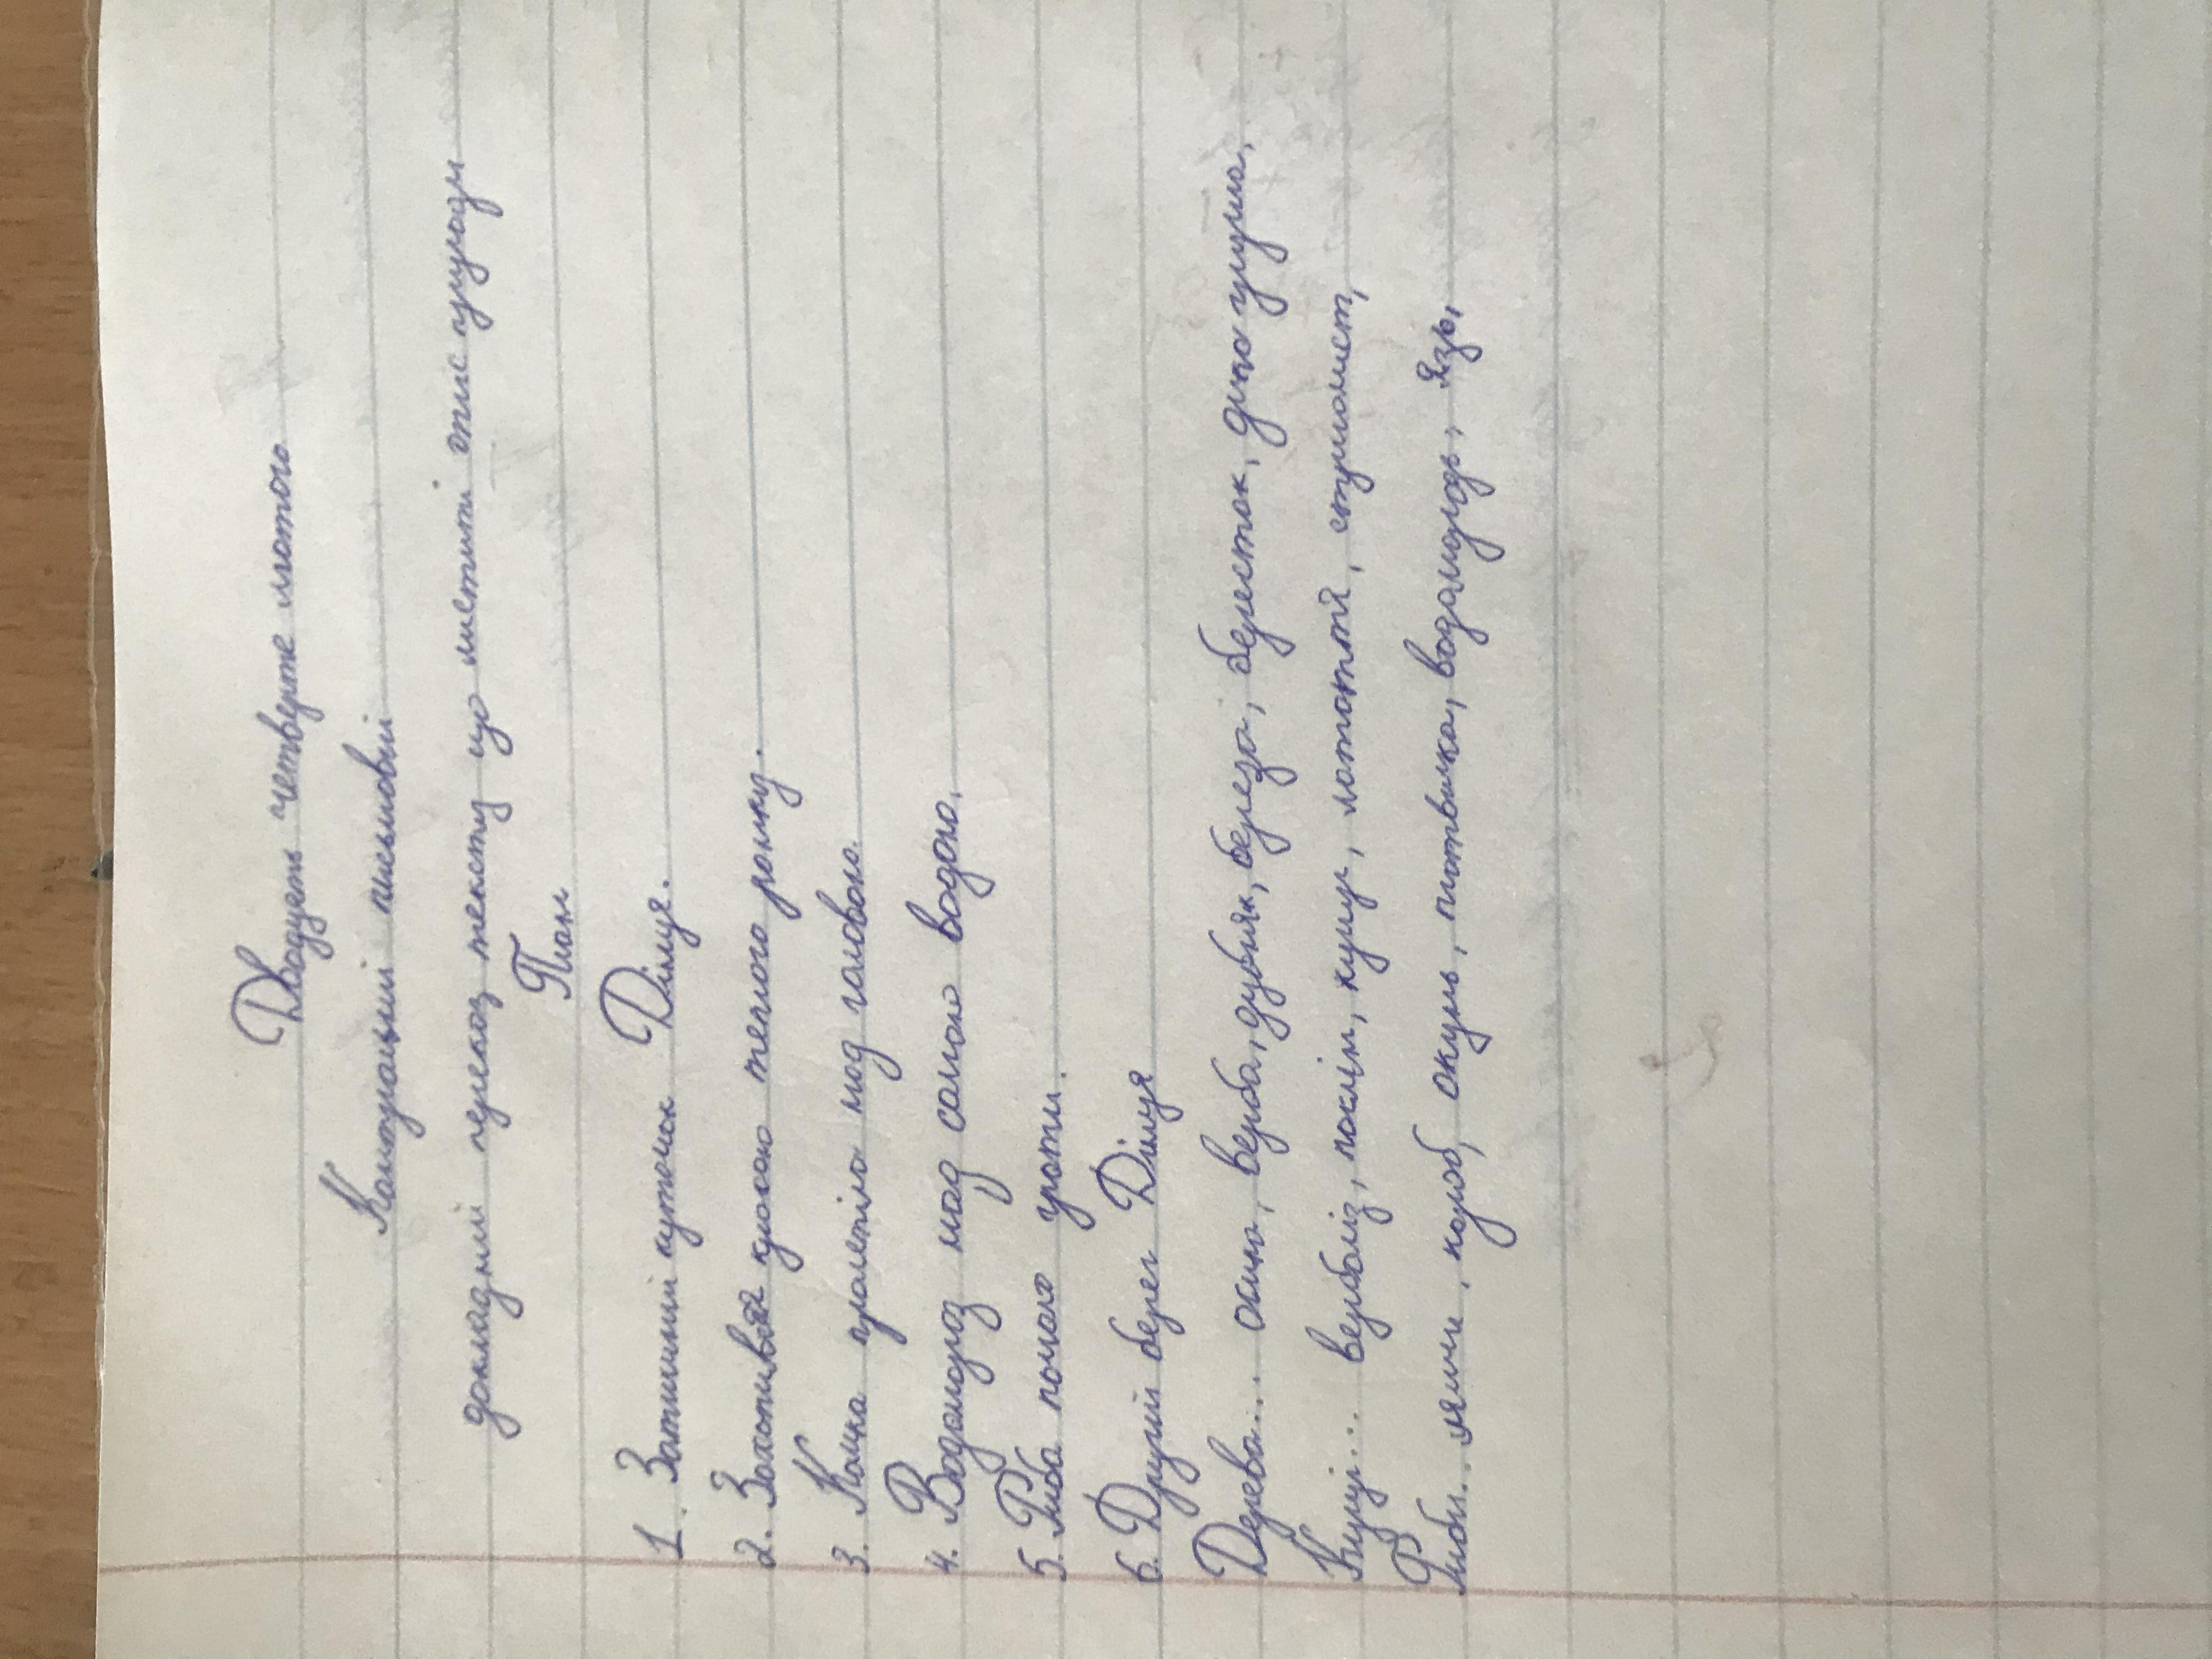 Двадцять четверте лютого
Контрольний письмовий
докладний переказ тексту що містить опис природи
План
1. Затишний куточок Дінця.
2. Захопився красою теплого ранку.
3. Качка пролетіла над головою.
4. Водомороз над самою водою.
5. Риба почала грати.
6. Другий берег Дінця
Дерева... осика, верба, дубняк, береза, бересток, дика груша,
Кущі... верболіз, паклін, кущу, лататтё, стрілолист,
Риби... лящі, короб, окунь, плотвичка, водомороз, язь,